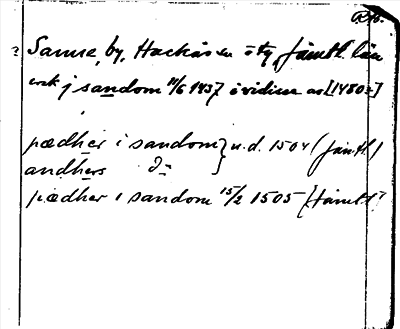 Rp.
? Sanne, by, Hackås sn o ty, Jämtl. län
vrk j sandom 14/6 1457 i vidim av [1480?]
pædher i sandom } u.d. 1504 (Jämtl)
andhers D:o
pædher i sandom 15/2 1505 (Jämtl)